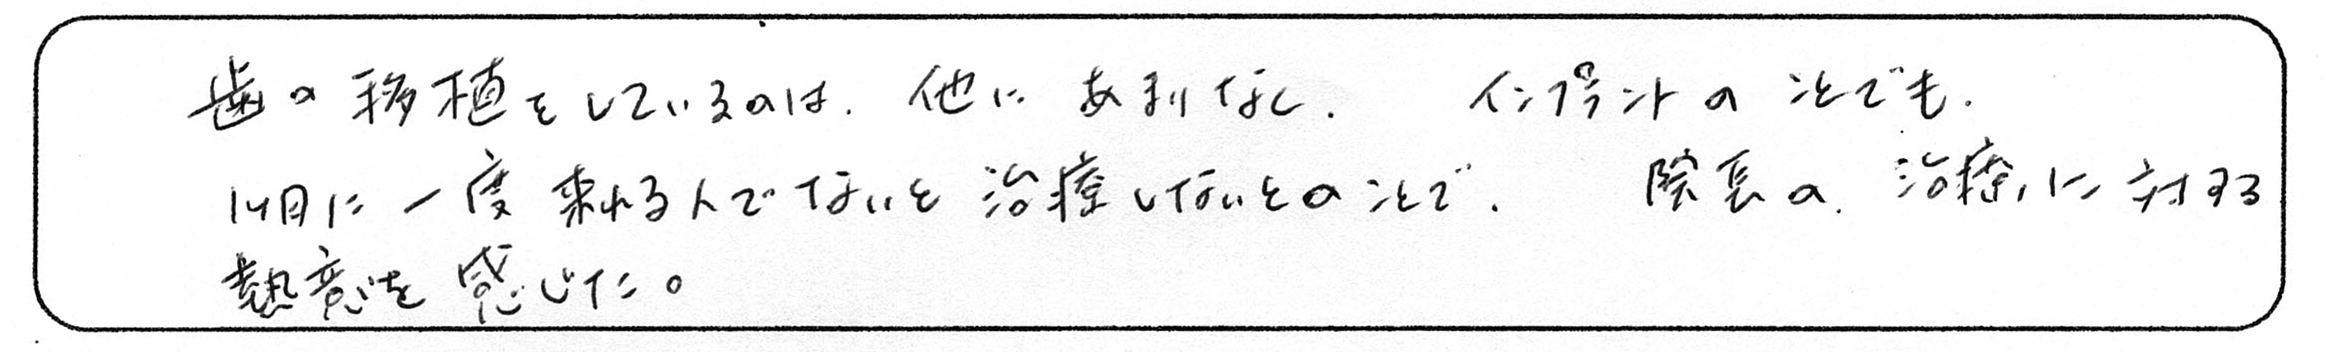 歯の移植をしているのは、他にあまりなし、インプラントのことでも、
1ヶ月に一度来れる人でないと治療しないとのことで、院長の、治療に対する
熱意を感じた。